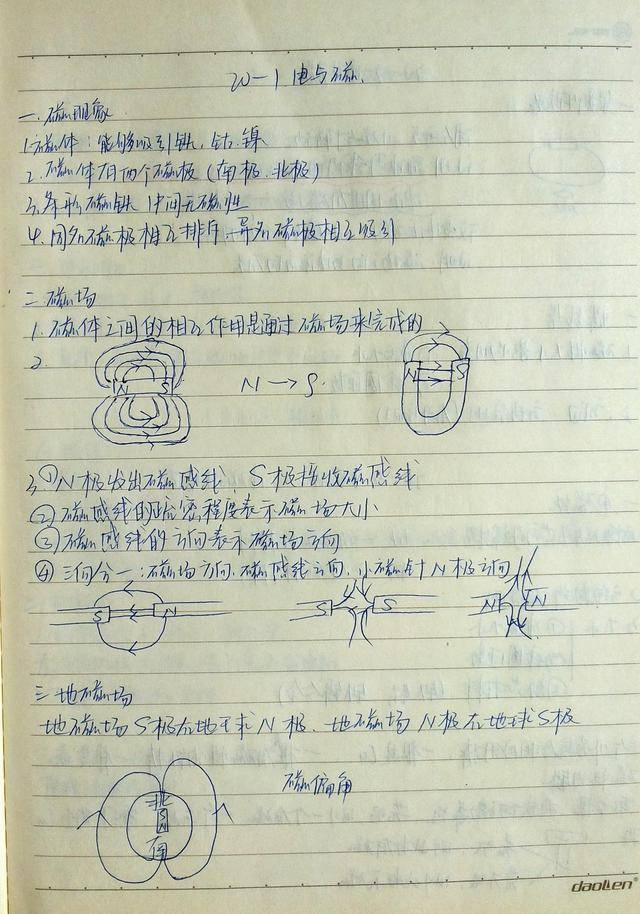 20-1 电与磁.
一.磁现象
1.磁体：能够吸引铁、钴、镍
2.磁体有两个磁极（南极、北极）
3.条形磁铁中间无磁性
4.同名磁极相互排斥、异名磁极相互吸引
二.磁场
1.磁体之间的相互作用是通过磁场来完成的
2.
N S
N → S.
N S
3.①N极发出磁感线、S极接收磁感线
②磁感线的疏密程度表示磁场大小
③磁感线的方向表示磁场方向
④三向合一：磁场方向、磁感线方向、小磁针N极方向
S N
S S
N N
三.地磁场
地磁场S极在地球N极、地磁场N极在地球S极
磁偏角
北
S
N
南
daolien®